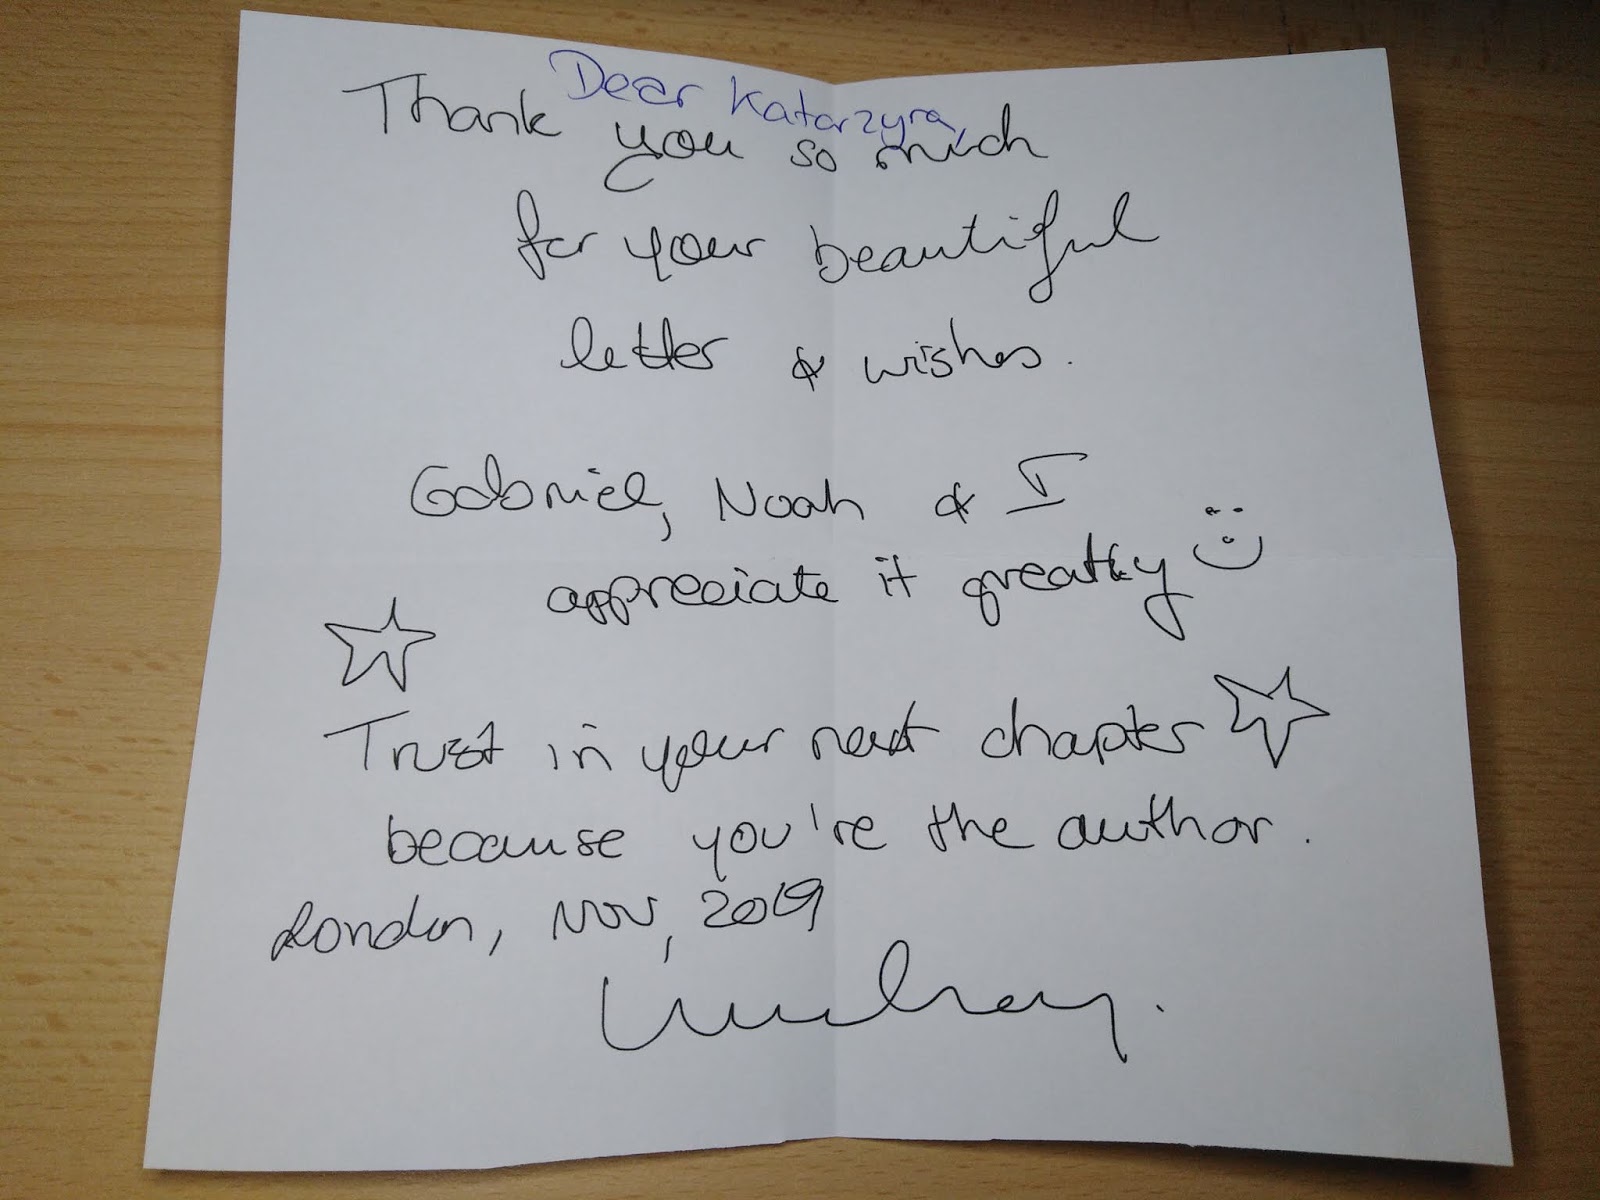 Dear Katarzyna,
Thank you so much
for your beautiful
letter & wishes.
Gabriel, Noah & I
appreciate it greatly
Trust in your next chapter
because you're the author.
London, Nov, 2019
Lindsay.